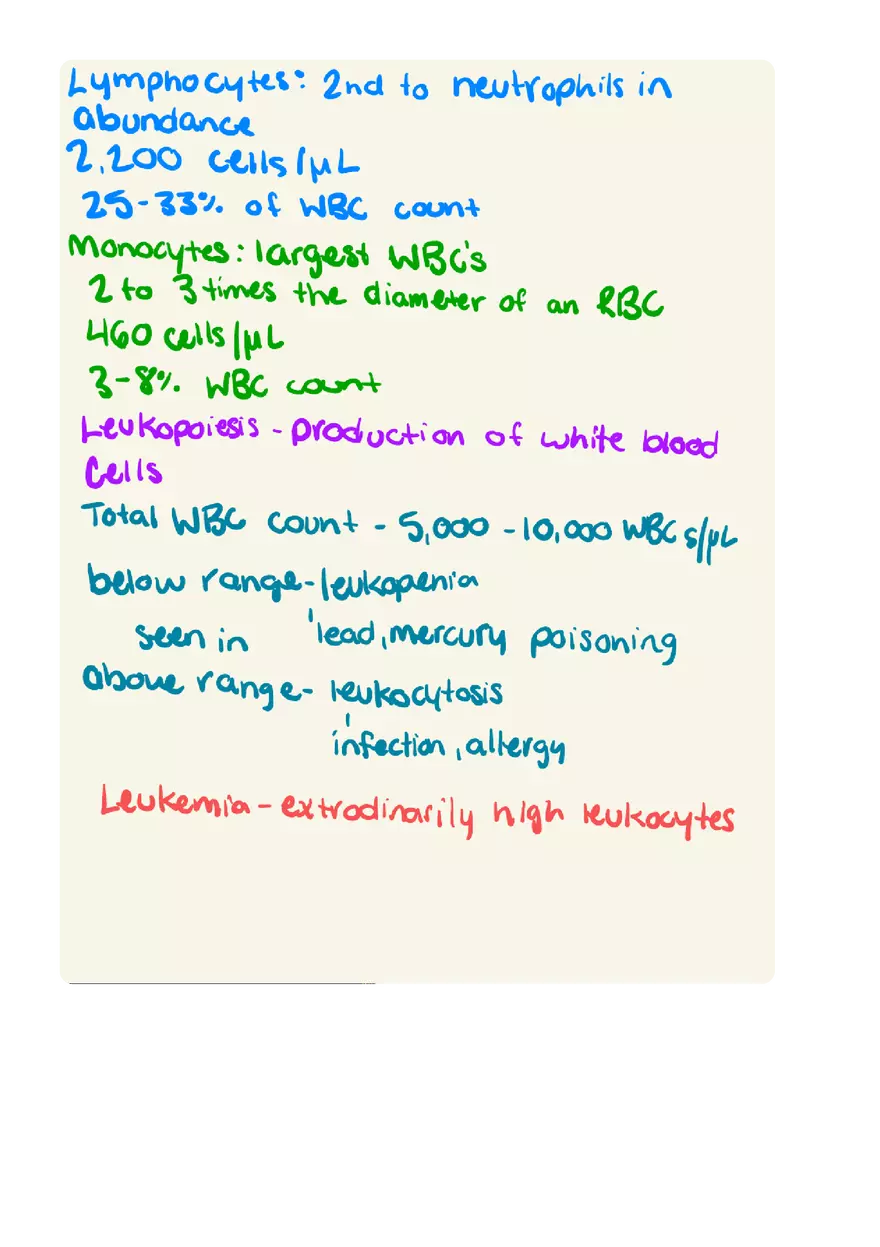 Lymphocytes: 2nd to neutrophils in
abundance
2,200 cells/μL
25-33% of WBC count
Monocytes: largest WBC's
2 to 3 times the diameter of an RBC
460 cells/μL
3-8% WBC count
Leukopoiesis - production of white blood
Cells
Total WBC count - 5,000 - 10,000 WBCs/μL
below range - leukopenia
seen in lead, mercury poisoning
above range - leukocytosis
infection, allergy
Leukemia - extrodinarily high leukocytes